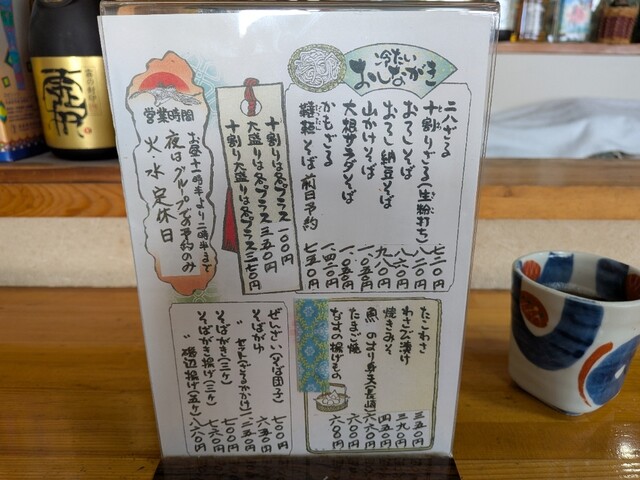 冷たい
おしながき
二八ざる 七二〇円
十割りざる(生粉打ち) 八二〇円
おろしそば
おろし納豆そば 九八〇円
山かけそば
大根サラダそば 一、〇五〇円
かもざる 一、四二〇円
そば 前日予約 七五〇円
十割りは各プラス 一〇〇円
大盛りは各プラス 三五〇円
十割り大盛りは各プラス 三七〇円
営業時間
お昼十一時半より二時半まで
夜はグループで予約のみ
火、水 定休日
たこわさ 三五〇円
わさび漬け 三九〇円
焼きみそ 四五〇円
魚のすり身天(長崎) 六六〇円
たまご焼 六〇〇円
なすの揚げもの 六〇〇円
ぜんざい(そば団子) 七〇〇円
そばがき 六五〇円
そばがき(三ケ) 七〇〇円
そばがき揚げ(三ケ) 七六〇円
〃 磯辺揚げ(五ケ) 八六〇円